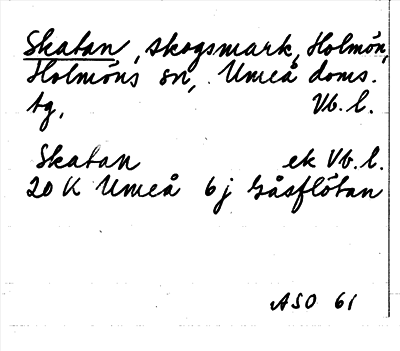 Skatan, skogsmark, Holmön,
Holmöns sn, Umeå doms.
tg, Vb.l.
Skatan ek Vb.l.
20 K Umeå 6j Gåsflötan
ASO 61